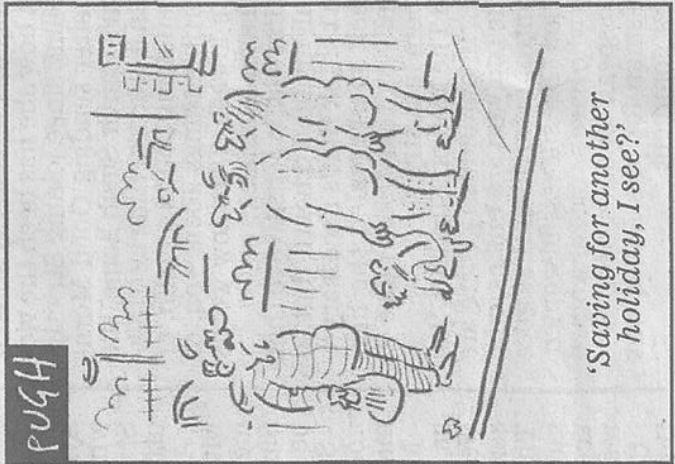 PUGH
'Saving for another
holiday, I see?'